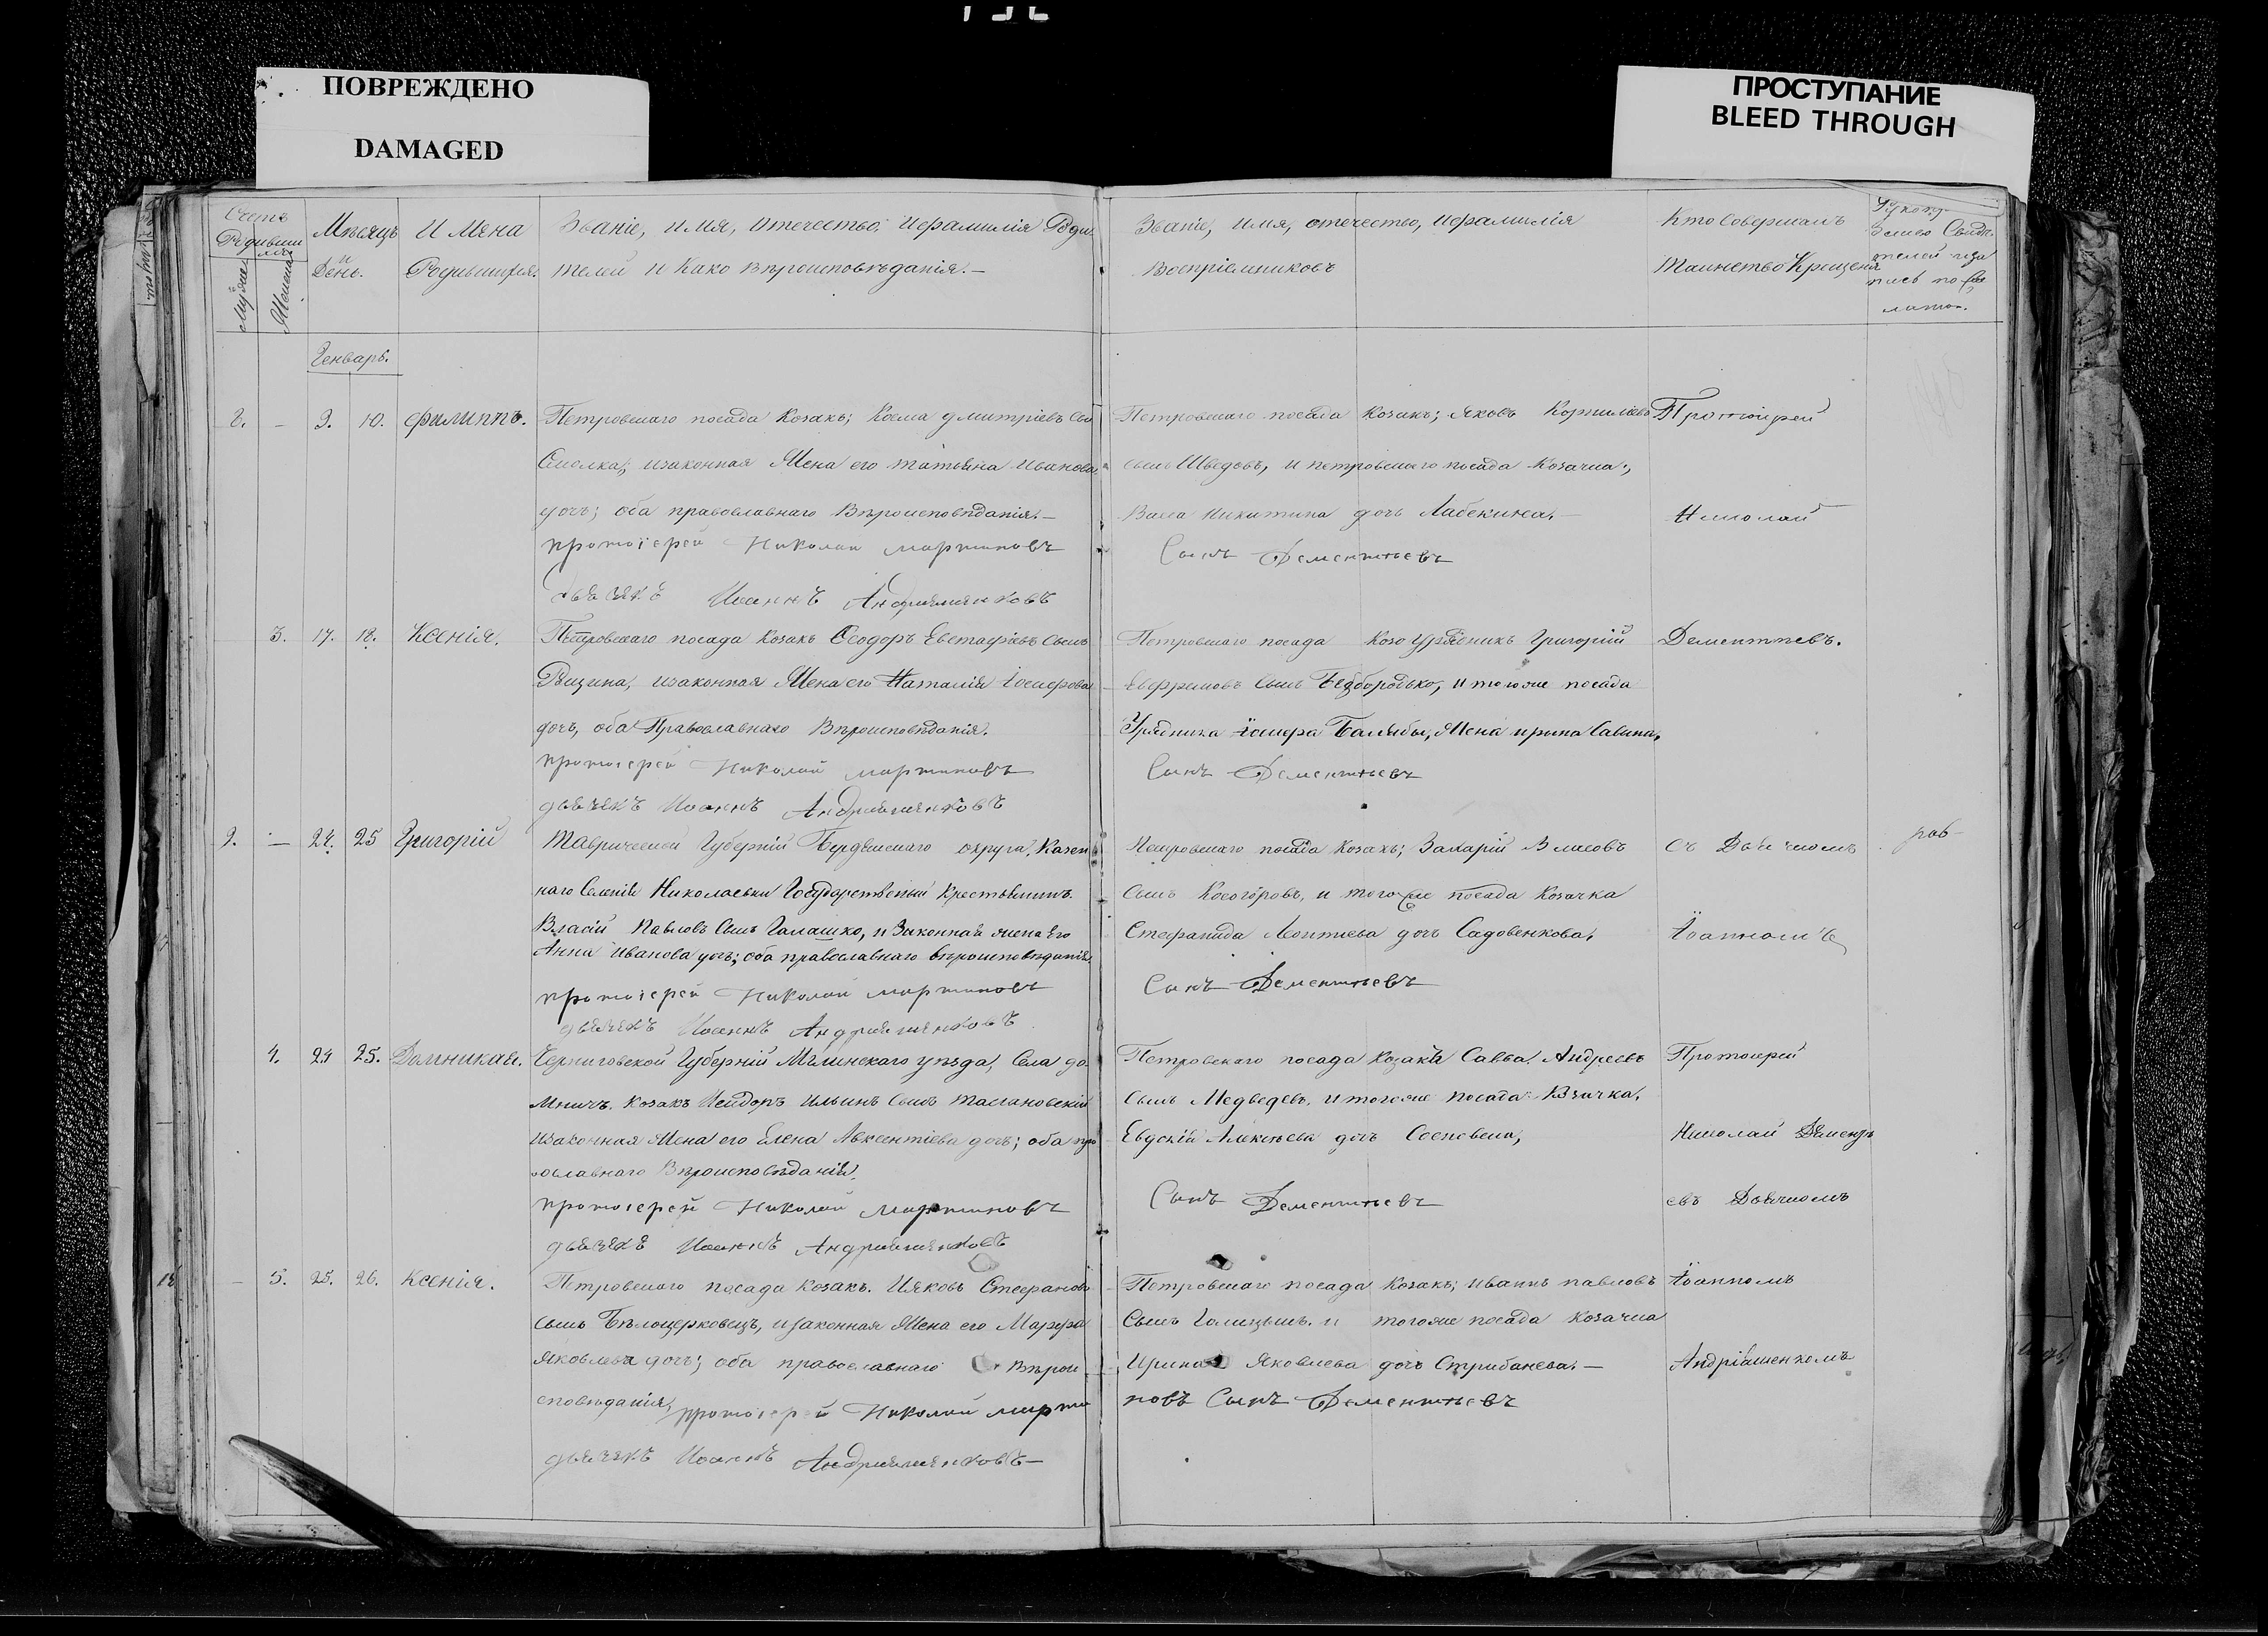 ПОВРЕЖДЕНО
DAMAGED
ПРОСТУПАНИЕ
BLEED THROUGH
Счетъ
Родивши
хся
Мужеи
Женска
Мѣсяцъ
и
День.
Имяна
Родившихся.
Званіе, имя, отечество, ифамилія Роди
телей и Како Вѣроисповѣданія.—
Званіе, имя, отечество, ифамилія
Воспріемниковъ
Кто Совершалъ
Таинство Крещенія
Генварь.
2. — 9. 10. Филиппъ.
Петровскаго посада Козакъ; Косма дмитріевъ Сы
Смолка; изаконная Жена его татьяна иванова
дочь; оба православнаго Вѣроисповѣданія.—
протоіерей Николай мартиновъ
дьячекъ Иоаннъ Андріяшенковъ
Петровскаго посада Козакъ; Яковъ Корнилиевъ
сынъ Шведовъ, и петровскаго посада Козачка;
Васса Никитина дочь Лабекина.—
Сынъ Дементьевъ
Протоіерей
Николай
3. 17. 18. Ксенія.
Петровскаго посада Козакъ Феодоръ Евстафіевъ Сынъ
изаконная Жена его Наталія Іосифова
дочь, оба Православнаго Вѣроисповѣданія.
протоіерей Николай мартиновъ
дьячекъ Иоаннъ Андріяшенковъ
Петровскаго посада Григорій
Евфремовъ Сынъ Безбородько, и тогоже посада
Урядника іосифа Балябы, Жена ирина Савина,
Сынъ Дементьевъ
Дементьевъ.
— 24. 25 Григорій
Таврической Губерній Бердянскаго округа, Казен
наго Селенія Николаевки Государственый Крестьянинъ
Власій Павловъ Сынъ Галашко, и Законная жена Его
Анна иванова дочь; оба православнаго вѣроисповѣданія.
протоіерей Николай мартиновъ
дьячекъ Иоаннъ Андріяшенковъ
Петровскаго посада Козакъ; Захарій Власовъ
Сынъ Косогоровъ, и того же посада Козачка
Стефанида Леонтиева дочь Садовенкова.
Сынъ Дементьевъ
Съ Дьячкомъ
Іоанномъ
4. 24 25. Домникая.
Черниговской Губерній Мглинскаго уѣзда, Села до
мничъ. Козакъ Исидоръ Ильинъ Сынъ
изаконная Жена его Елена Авксентіева дочь; оба пра
вославнаго Вѣроисповѣданія.
протоіерей Николай мартиновъ
дьячекъ Иоаннъ Андріяшенковъ
Петровскаго посада Козакъ Савва Андреевъ
Сынъ Медведевъ, и тогоже посада Козачка,
Евдокія Алексѣева дочь
Сынъ Дементьевъ
Протоиерей
Николай Дементь
евъ Дьячкомъ
— 5. 25. 26. Ксенія.
Петровскаго посада Козакъ. Ияковъ Стефановъ
сынъ Бѣлоцерковецъ, изаконная Жена его Марфа
Яковлева дочь; оба православнаго Вѣрои
сповѣданія, протоіерей Николай марти
дьячекъ Иоаннъ Андріяшенковъ—
Петровскаго посада Козакъ; иванъ павловъ
Сынъ Галицынъ. и тогоже посада Козачка
Ирина Яковлева дочь Стрибанева.—
новъ Сынъ Дементьевъ
Іоанномъ
Андріяшенкомъ